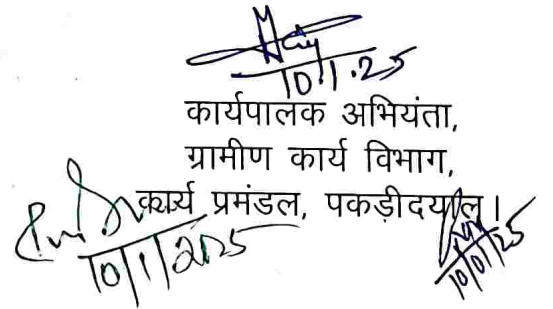 10.1.25
कार्यपालक अभियंता,
ग्रामीण कार्य विभाग,
कार्य प्रमंडल, पकड़ीदयाल।
10/1/2025
10/01/25